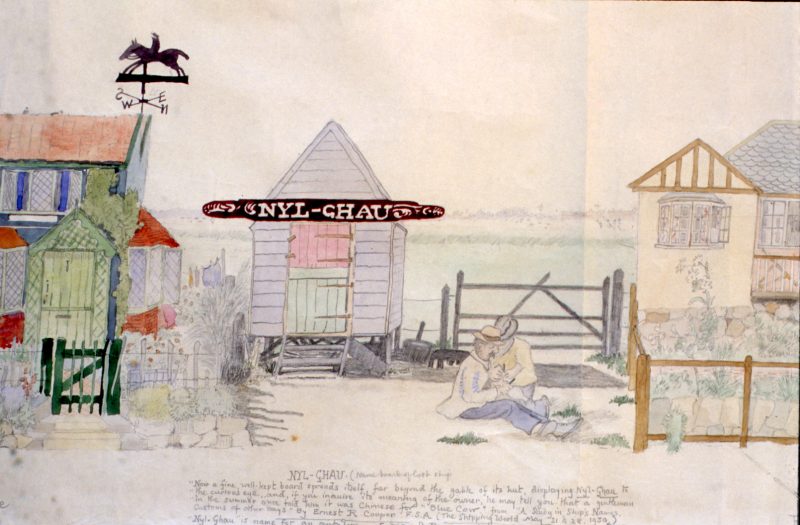 S
E
W
N
NYL-GHAU
NYL-GHAU. (Name board of lost ship
"Now a fine well-kept board spreads itself, far beyond the gable of its hut, displaying Nyl-Ghau to
the curious eye, and, if you inquire its meaning of the owner, he may tell you that a gentleman
in the summer once told him it was Chinese for "Blue Cow" from "A Study in Ship's Names.
Customs of other days" – by Ernest R. Cooper. F.S.A. (The Shipping World May 21 & 28. 1930.)
Nyl-Ghau is name for an